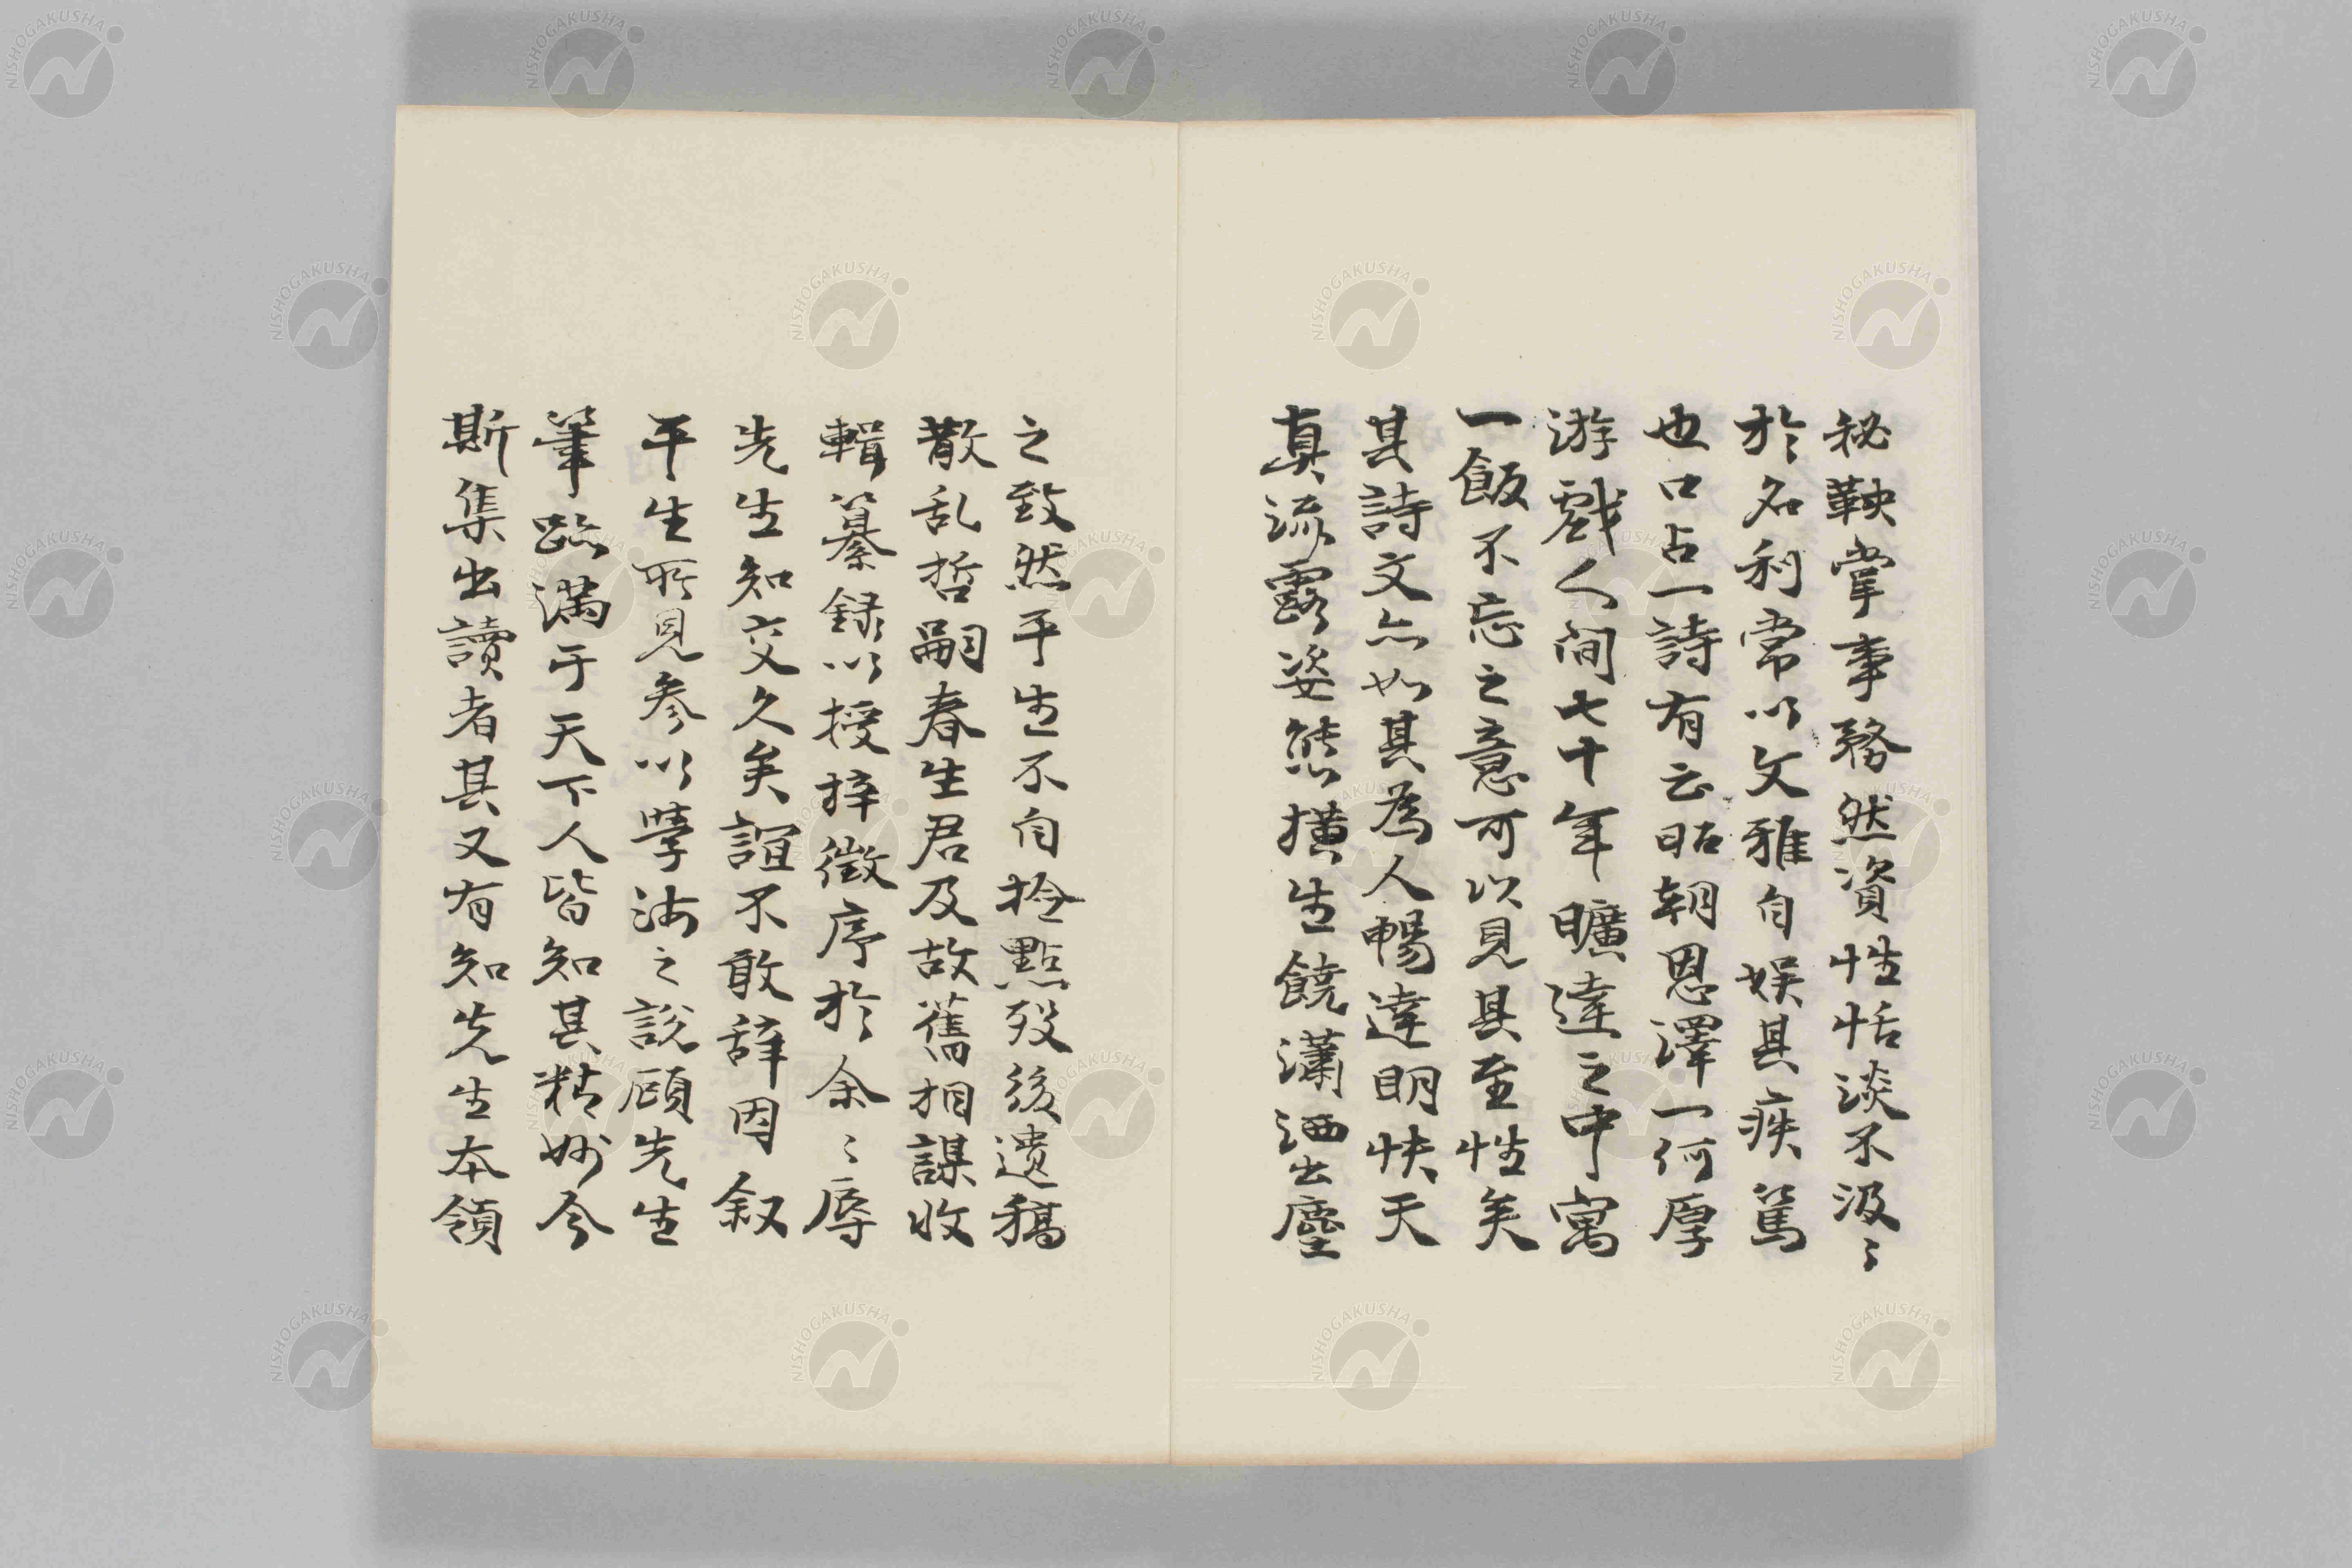 秘鞅掌事務然資性恬淡不汲〻
於名利常以文雅自娯其疾篤
也口占一詩有云昭朝恩澤一何厚
游戯人间七十年曠達之中寓
一飯不忘之意可以見其至性矣
其詩文亦如其為人暢達明快天
真流露姿態横生饒瀟洒出塵
之致然平生不自捡點歿後遺稿
散乱哲嗣春生君及故舊相謀收
輯纂録以授梓徴序於余〻辱
先生知交久矣誼不敢辞因叙
平生所見参以學海之説顧先生
筆跡満于天下人皆知其精妙今
斯集出讀者其又有知先生本領
NISHOGAKUSHA